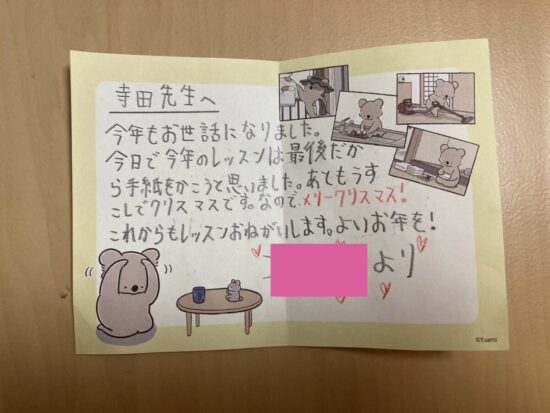 寺田先生へ
今年もお世話になりました。
今日で今年のレッスンは最後だか
ら手紙をかこうと思いました。あともうす
こしでクリスマスです。なので、メリークリスマス!
これからもレッスンおねがいします。よいお年を!
より
©Yuami